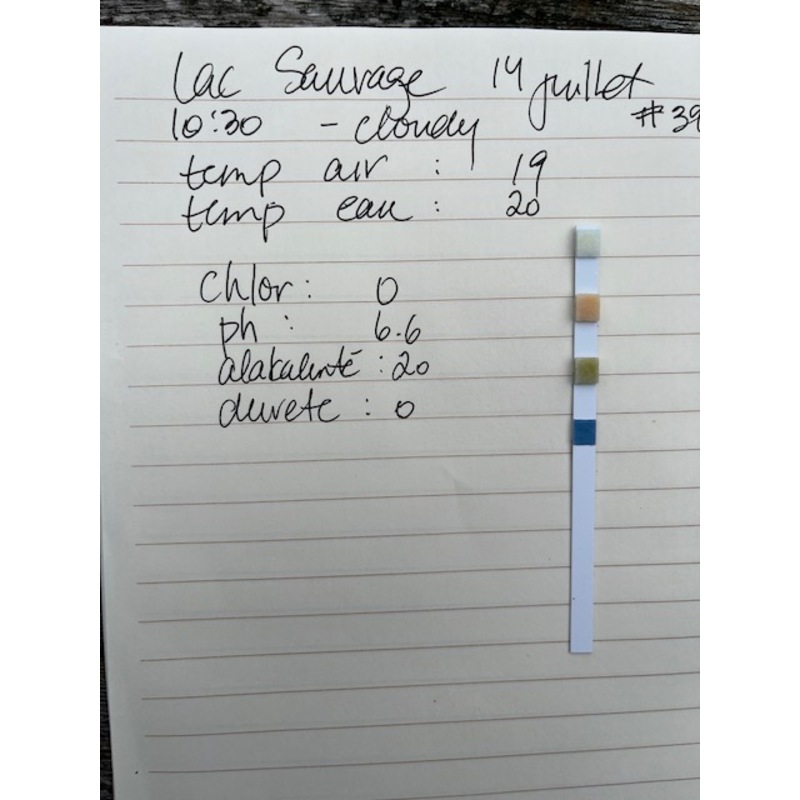 Lac Sauvage 14 juillet
10:30 - cloudy #39
temp air : 19
temp eau : 20
chlor : 0
ph : 6.6
alakalinté : 20
durete : 0